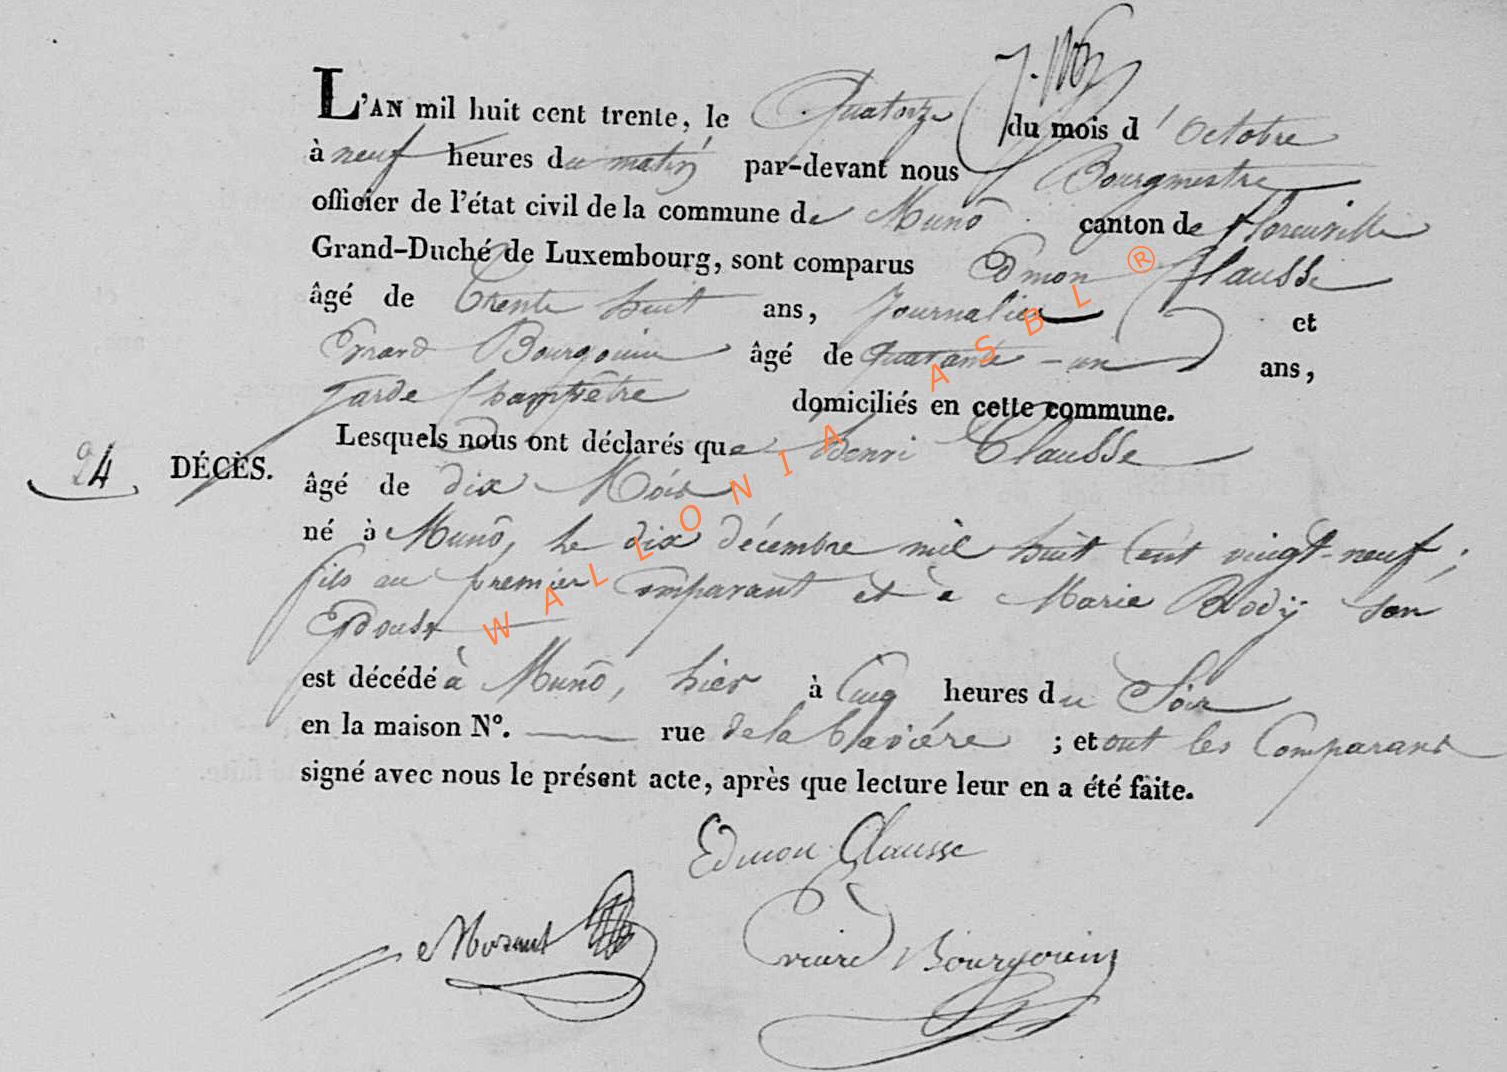 L'AN mil huit cent trente, le Quatorze du mois d'Octobre
à neuf heures du matin par-devant nous Bourgmestre
officier de l'état civil de la commune de Munô canton de Florenville
Grand-Duché de Luxembourg, sont comparus Edmon Clausse
âgé de Trente huit ans, Journalier et
Erard Bourgouin âgé de quarante-un ans,
Garde Champêtre domiciliés en cette commune.
Lesquels nous ont déclarés que Henri Clausse
24 DÉCÈS.
âgé de dix Mois
né à Munô, le dix décembre mil huit Cent vingt-neuf;
fils au premier Comparant et à Marie Rodÿ son
Epouse
est décédé à Munô, hier à Cinq heures du Soir
en la maison Nº. rue de la ; et ont les Comparans
signé avec nous le présent acte, après que lecture leur en a été faite.
Edmon Clausse
Bourgouin
WALLONIA ASBL ®